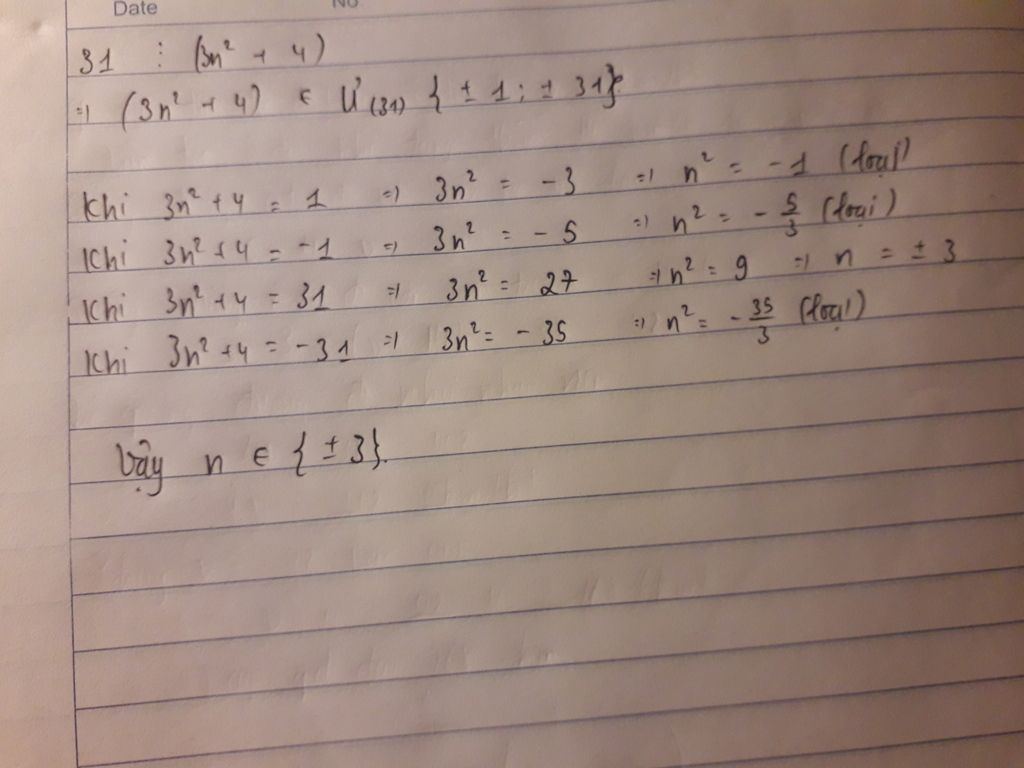 Date No
31 ⋮ (3n² + 4)
=) (3n² + 4) ∈ Ư(31) { ± 1 ; ± 31}
Khi 3n² + 4 = 1 =) 3n² = -3 =) n² = -1 (loại)
Khi 3n² + 4 = -1 =) 3n² = -5 =) n² = -5/3 (loại)
Khi 3n² + 4 = 31 =) 3n² = 27 =) n² = 9 =) n = ± 3
Khi 3n² + 4 = -31 =) 3n² = -35 =) n² = -35/3 (loại)
Vậy n ∈ { ± 3}.